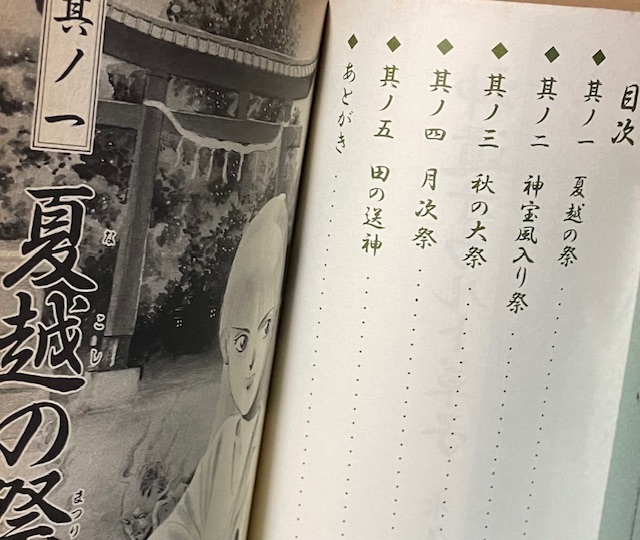 目次
其ノ一 夏越の祭
其ノ二 神宝風入り祭
其ノ三 秋の大祭
其ノ四 月次祭
其ノ五 田の送神
あとがき
其ノ一
夏越の祭
なごし
まつり